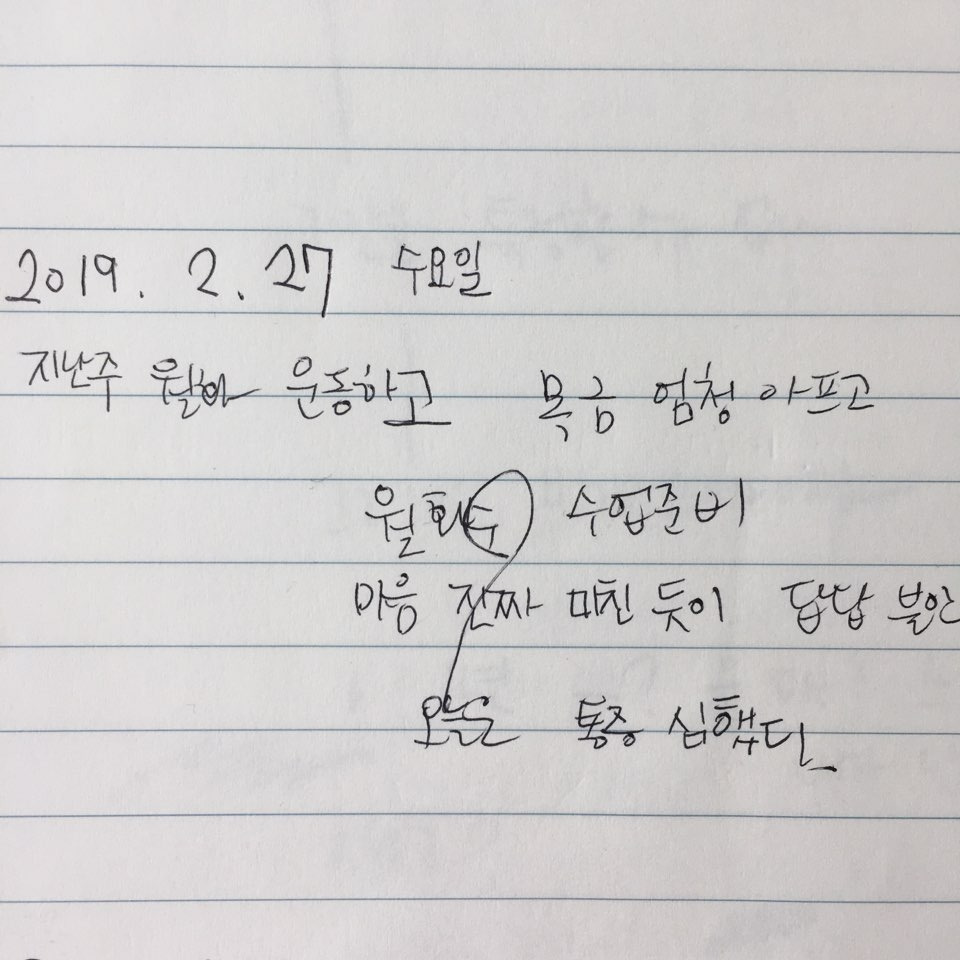 2019. 2. 27 수요일
지난주 월화 운동하고 목금 엄청 아프고
월화수 수업준비
마음 진짜 미친 듯이 답답 불안
오늘 통증 심했다